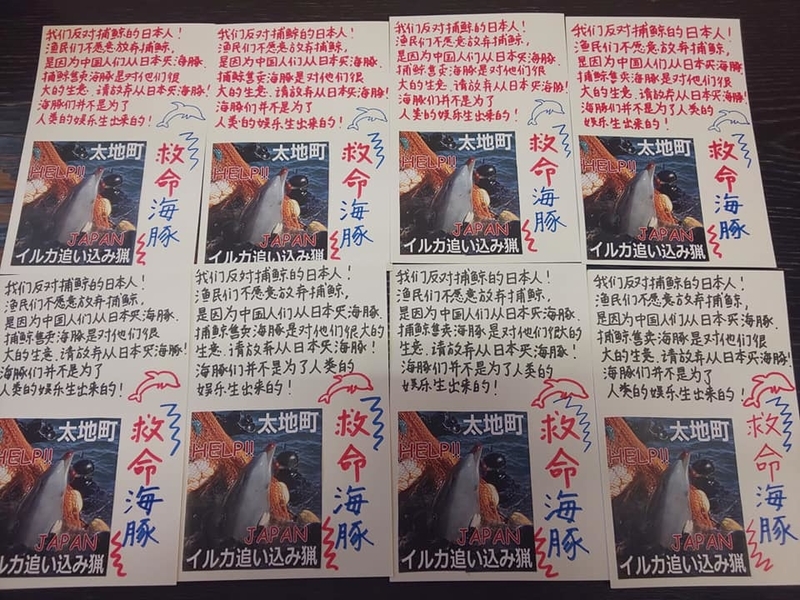 我们反对捕鲸的日本人！
渔民们不愿意放弃捕鲸，
是因为中国人们从日本买海豚.
捕鲸售卖海豚是对他们很
大的生意.请放弃从日本买海豚！
海豚们并不是为了
人类的娱乐生出来的！
太地町
HELP!!
JAPAN
イルカ追い込み猟
救命海豚
我们反对捕鲸的日本人！
渔民们不愿意放弃捕鲸，
是因为中国人们从日本买海豚.
捕鲸售卖海豚是对他们很
大的生意.请放弃从日本买海豚！
海豚们并不是为了
人类的娱乐生出来的！
太地町
HELP!!
JAPAN
イルカ追い込み猟
救命海豚
我们反对捕鲸的日本人！
渔民们不愿意放弃捕鲸，
是因为中国人们从日本买海豚.
捕鲸售卖海豚是对他们很
大的生意.请放弃从日本买海豚！
海豚们并不是为了
人类的娱乐生出来的！
太地町
HELP!!
JAPAN
イルカ追い込み猟
救命海豚
我们反对捕鲸的日本人！
渔民们不愿意放弃捕鲸，
是因为中国人们从日本买海豚.
捕鲸售卖海豚是对他们很
大的生意.请放弃从日本买海豚！
海豚们并不是为了人类的
娱乐生出来的！
太地町
HELP!!
JAPAN
イルカ追い込み猟
救命海豚
我们反对捕鲸的日本人！
渔民们不愿意放弃捕鲸，
是因为中国人们从日本买海豚.
捕鲸售卖海豚是对他们很
大的生意.请放弃从日本买海豚！
海豚们并不是为了
人类的娱乐生出来的！
太地町
HELP!!
JAPAN
ルカ追い込み猟
救命海豚
我们反对捕鲸的日本人！
渔民们不愿意放弃捕鲸，
是因为中国人们从日本买海豚.
捕鲸售卖海豚是对他们很大的
生意.请放弃从日本买海豚！
海豚们并不是为了人类的
娱乐生出来的！
太地町
HELP!!
JAPAN
イルカ追い込み猟
救命海豚
我们反对捕鲸的日本人！
渔民们不愿意放弃捕鲸，
是因为中国人们从日本买海豚.
捕鲸售卖海豚是对他们很大的
生意.请放弃从日本买海豚！
海豚们并不是为了人类的
娱乐生出来的！
太地町
HELP!!
JAPAN
イルカ追い込み猟
救命海豚
我们反对捕鲸的日本人！
渔民们不愿意放弃捕鲸，
是因为中国人们从日本买海豚.
捕鲸售卖海豚是对他们很
大的生意.请放弃从日本买海豚！
海豚们并不是为了
人类的娱乐生出来的！
太地町
HELP!!
JAPAN
イルカ追い込み猟
救命海豚